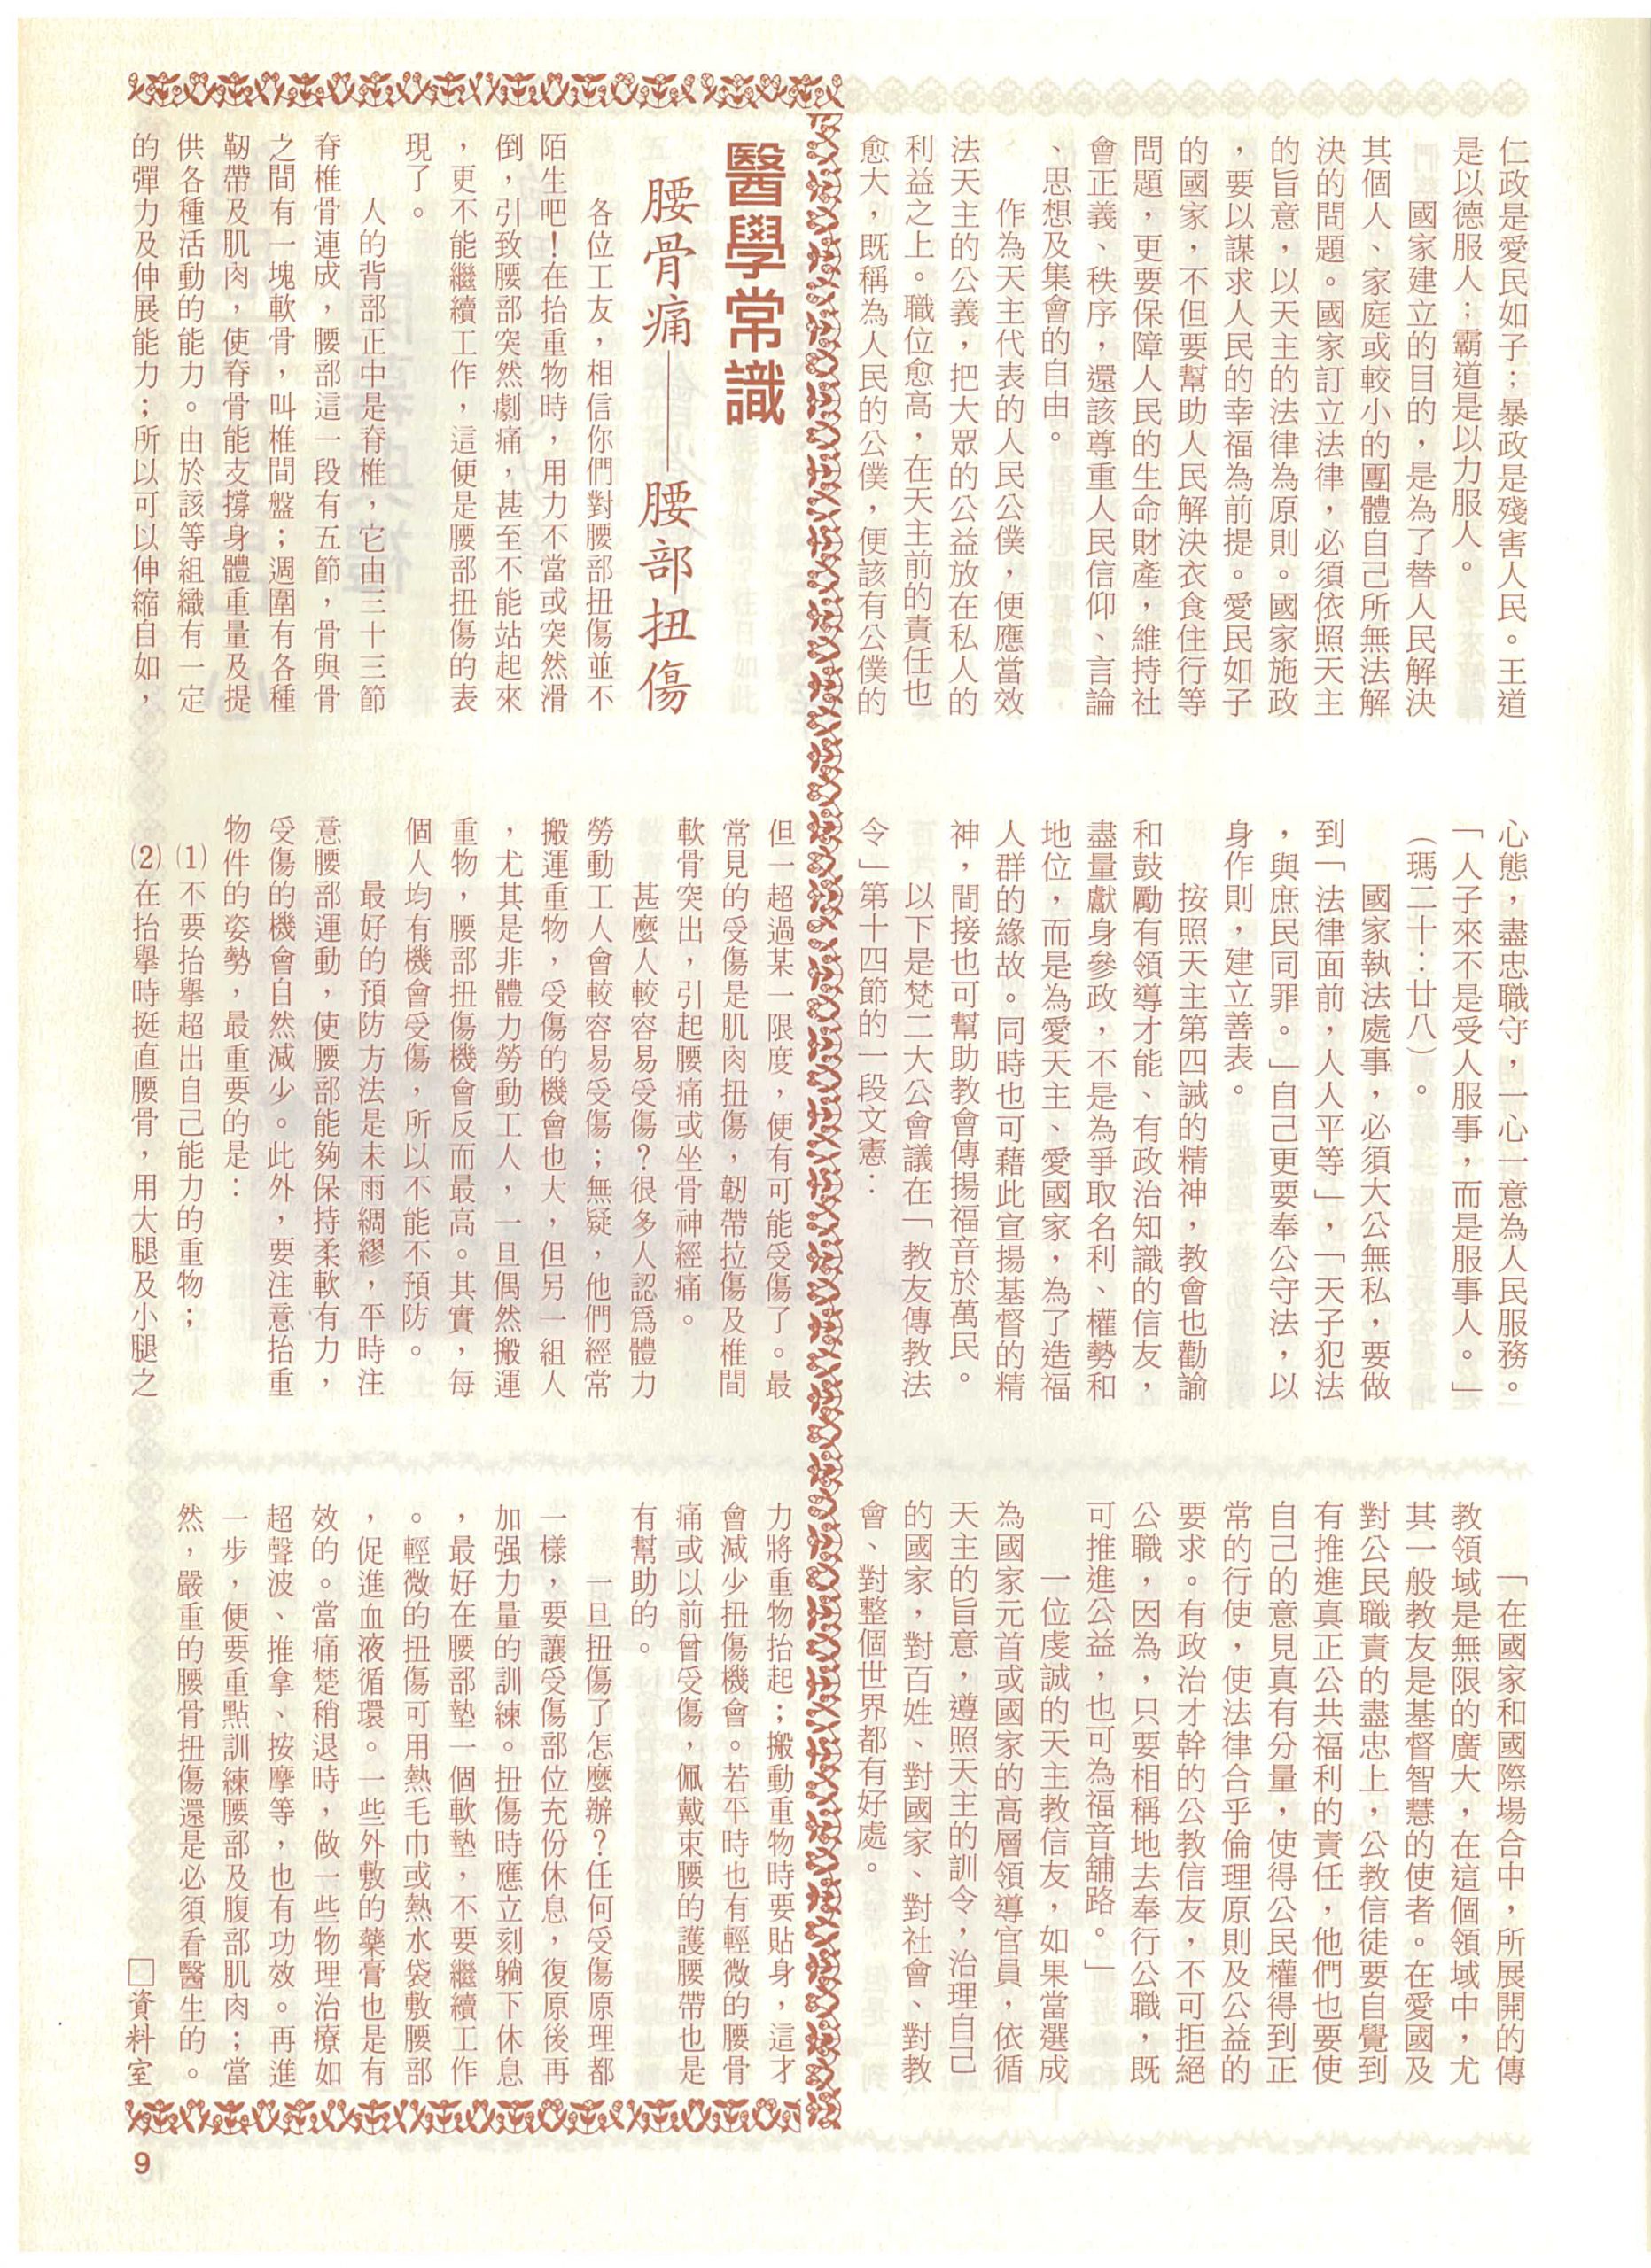 仁政是愛民如子；暴政是殘害人民。王道
是以德服人；霸道是以力服人。
國家建立的目的，是為了替人民解決
其個人、家庭或較小的團體自己所無法解
決的問題。國家訂立法律，必須依照天主
的旨意，以天主的法律為原則。國家施政
，要以謀求人民的幸福為前提。愛民如子
的國家，不但要幫助人民解決衣食住行等
問題，更要保障人民的生命財產，維持社
會正義、秩序，還該尊重人民信仰、言論
、思想及集會的自由。
作為天主代表的人民公僕，便應當效
法天主的公義，把大眾的公益放在私人的
利益之上。職位愈高，在天主前的責任也
愈大，既稱為人民的公僕，便該有公僕的
心態，盡忠職守，一心一意為人民服務。
「人子來不是受人服事，而是服事人。」
（瑪二十：廿八）。
國家執法處事，必須大公無私，要做
到「法律面前，人人平等」，「天子犯法
，與庶民同罪。」自己更要奉公守法，以
身作則，建立善表。
按照天主第四誡的精神，教會也勸諭
和鼓勵有領導才能、有政治知識的信友，
盡量獻身參政，不是為爭取名利、權勢和
地位，而是為愛天主、愛國家，為了造福
人群的緣故。同時也可藉此宣揚基督的精
神，間接也可幫助教會傳揚福音於萬民。
以下是梵二大公會議在「教友傳教法
令」第十四節的一段文憲：
「在國家和國際場合中，所展開的傳
教領域是無限的廣大，在這個領域中，尤
其一般教友是基督智慧的使者。在愛國及
對公民職責的盡忠上，公教信徒要自覺到
有推進真正公共福利的責任，他們也要使
自己的意見真有分量，使得公民權得到正
常的行使，使法律合乎倫理原則及公益的
要求。有政治才幹的公教信友，不可拒絕
公職，因為，只要相稱地去奉行公職，既
可推進公益，也可為福音舖路。」
一位虔誠的天主教信友，如果當選成
為國家元首或國家的高層領導官員，依循
天主的旨意，遵照天主的訓令，治理自己
的國家，對百姓、對國家、對社會、對教
會、對整個世界都有好處。
醫學常識
腰骨痛——腰部扭傷
各位工友，相信你們對腰部扭傷並不
陌生吧！在抬重物時，用力不當或突然滑
倒，引致腰部突然劇痛，甚至不能站起來
，更不能繼續工作，這便是腰部扭傷的表
現了。
人的背部正中是脊椎，它由三十三節
脊椎骨連成，腰部這一段有五節，骨與骨
之間有一塊軟骨，叫椎間盤；週圍有各種
韌帶及肌肉，使脊骨能支撐身體重量及提
供各種活動的能力。由於該等組織有一定
的彈力及伸展能力；所以可以伸縮自如，
但一超過某一限度，便有可能受傷了。最
常見的受傷是肌肉扭傷，韌帶拉傷及椎間
軟骨突出，引起腰痛或坐骨神經痛。
甚麼人較容易受傷？很多人認爲體力
勞動工人會較容易受傷；無疑，他們經常
搬運重物，受傷的機會也大，但另一組人
，尤其是非體力勞動工人，一旦偶然搬運
重物，腰部扭傷機會反而最高。其實，每
個人均有機會受傷，所以不能不預防。
最好的預防方法是未雨綢繆，平時注
意腰部運動，使腰部能夠保持柔軟有力，
受傷的機會自然減少。此外，要注意抬重
物件的姿勢，最重要的是：
⑴不要抬舉超出自己能力的重物；
⑵在抬舉時挺直腰骨，用大腿及小腿之
力將重物抬起；搬動重物時要貼身，這才
會減少扭傷機會。若平時也有輕微的腰骨
痛或以前曾受傷，佩戴束腰的護腰帶也是
有幫助的。
一旦扭傷了怎麼辦？任何受傷原理都
一樣，要讓受傷部位充份休息，復原後再
加强力量的訓練。扭傷時應立刻躺下休息
，最好在腰部墊一個軟墊，不要繼續工作
。輕微的扭傷可用熱毛巾或熱水袋敷腰部
，促進血液循環。一些外敷的藥膏也是有
效的。當痛楚稍退時，做一些物理治療如
超聲波、推拿、按摩等，也有功效。再進
一步，便要重點訓練腰部及腹部肌肉；當
然，嚴重的腰骨扭傷還是必須看醫生的。
□資料室
9